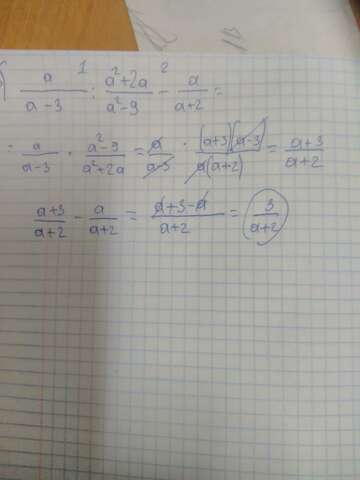 б) a/(a-3) :¹ (a²+2a)/(a²-9) -² a/(a+2) =
= a/(a-3) · (a²-9)/(a²+2a) = a/(a-3) · (a+3)(a-3)/(a(a+2)) = (a+3)/(a+2)
(a+3)/(a+2) - a/(a+2) = (a+3-a)/(a+2) = 3/(a+2)